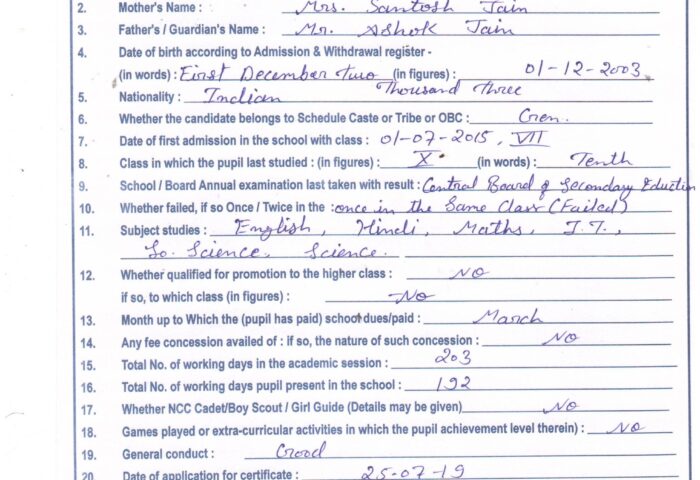 2. Mother's Name : Mrs. Santosh Jain
3. Father's / Guardian's Name : Mr. Ashok Jain
4. Date of birth according to Admission & Withdrawal register -
(in words) : First December Two (in figures) : 01-12-2003
Thousand Three
5. Nationality : Indian
6. Whether the candidate belongs to Schedule Caste or Tribe or OBC : Gen.
7. Date of first admission in the school with class : 01-07-2015, VII
8. Class in which the pupil last studied : (in figures) : X (in words) : Tenth
9. School / Board Annual examination last taken with result : Central Board of Secondary Eduction
10. Whether failed, if so Once / Twice in the : once in the Same Class (Failed)
11. Subject studies : English, Hindi, Maths, I.T.,
So. Science, Science.
12. Whether qualified for promotion to the higher class : NO
if so, to which class (in figures) : No
13. Month up to Which the (pupil has paid) school dues/paid : March
14. Any fee concession availed of : if so, the nature of such concession : No
15. Total No. of working days in the academic session : 203
16. Total No. of working days pupil present in the school : 192
17. Whether NCC Cadet/Boy Scout / Girl Guide (Details may be given) No
18. Games played or extra-curricular activities in which the pupil achievement level therein) : No
19. General conduct : Good
20 Date of application for certificate : 25-07-19